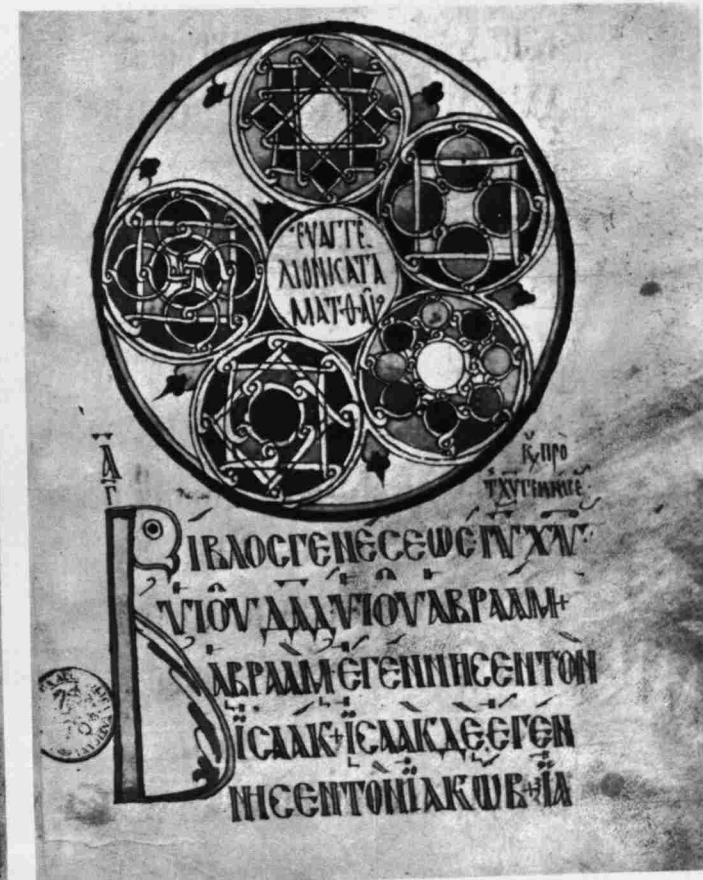 ΕΥΑΓΓΕ
ΛΙΟΝ ΚΑΤΑ
ΜΑΤΘΑΙΟ
Ᾱ
Γ
ΚΥ ΠΡΟ
ΒΙΒΛΟΣ ΓΕΝΕΣΕΩΣ ΙΥ ΧΥ
ΥΙΟΥ ΔΑΔ ΥΙΟΥ ΑΒΡΑΑΜ+
ΑΒΡΑΑΜ ΕΓΕΝΝΗΣΕΝ ΤΟΝ
ΪΣΑΑΚ+ ΪΣΑΑΚ ΔΕ ΕΓΕΝ
ΝΗΣΕΝ ΤΟΝ ΪΑΚΩΒ+ ΪΑ